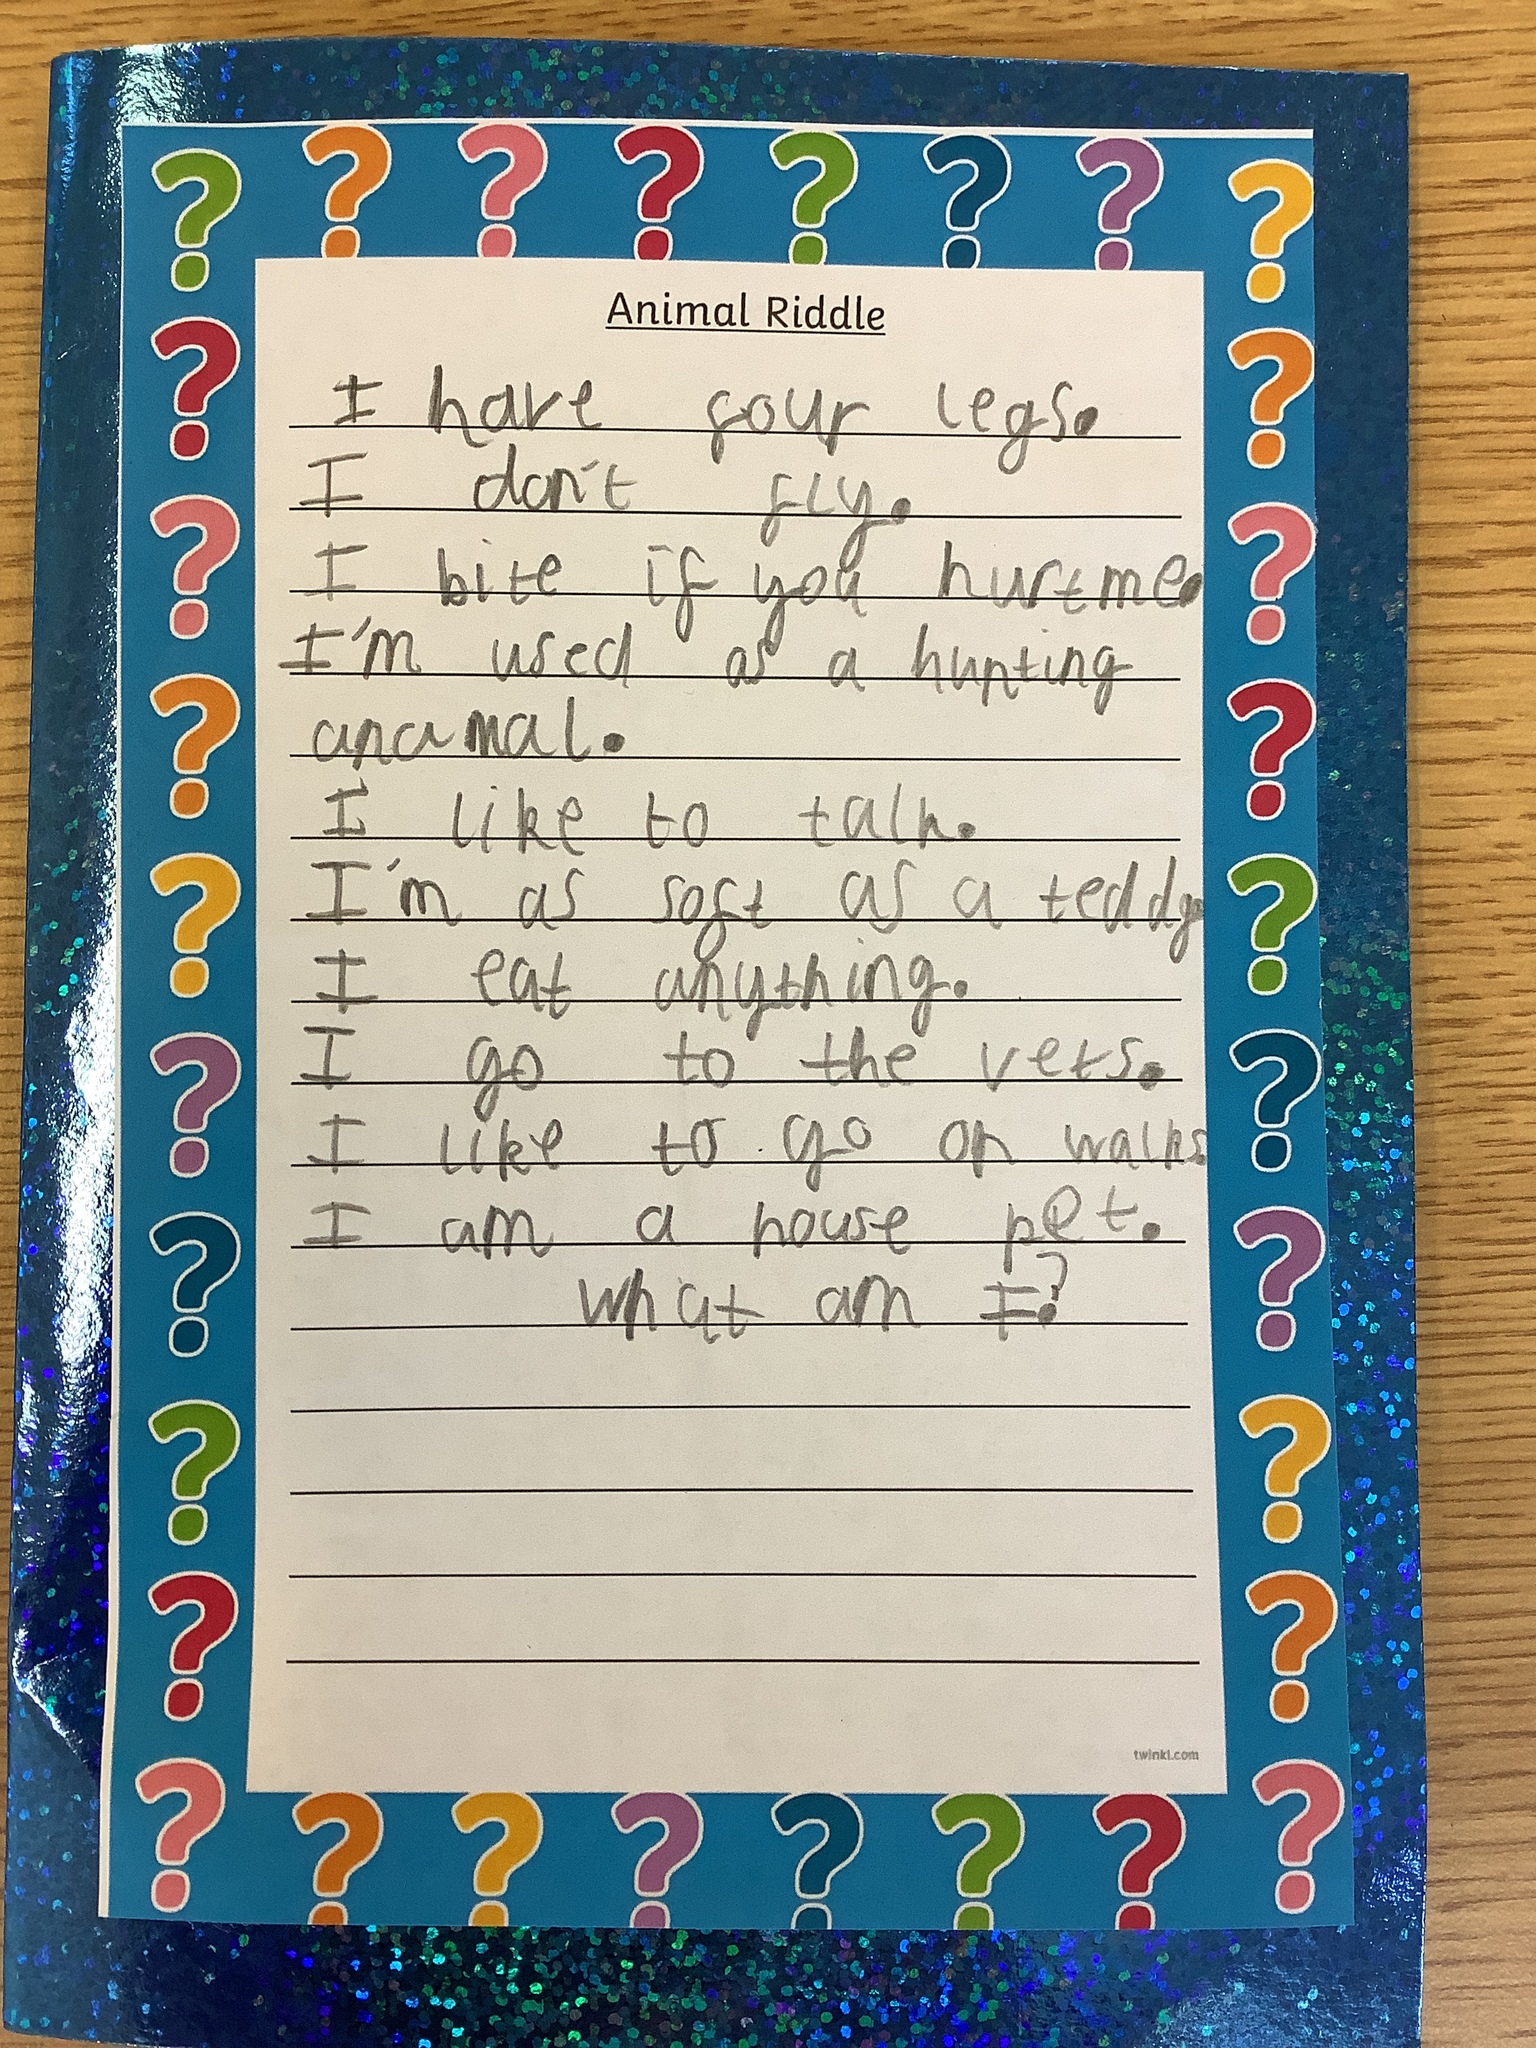 Animal Riddle
I have four legs.
I don't fly.
I bite if you hurt me.
I'm used as a hunting
anamal.
I like to talk.
I'm as soft as a teddy.
I eat anything.
I go to the vets.
I like to go on walks.
I am a house pet.
What am I?
twinkl.com